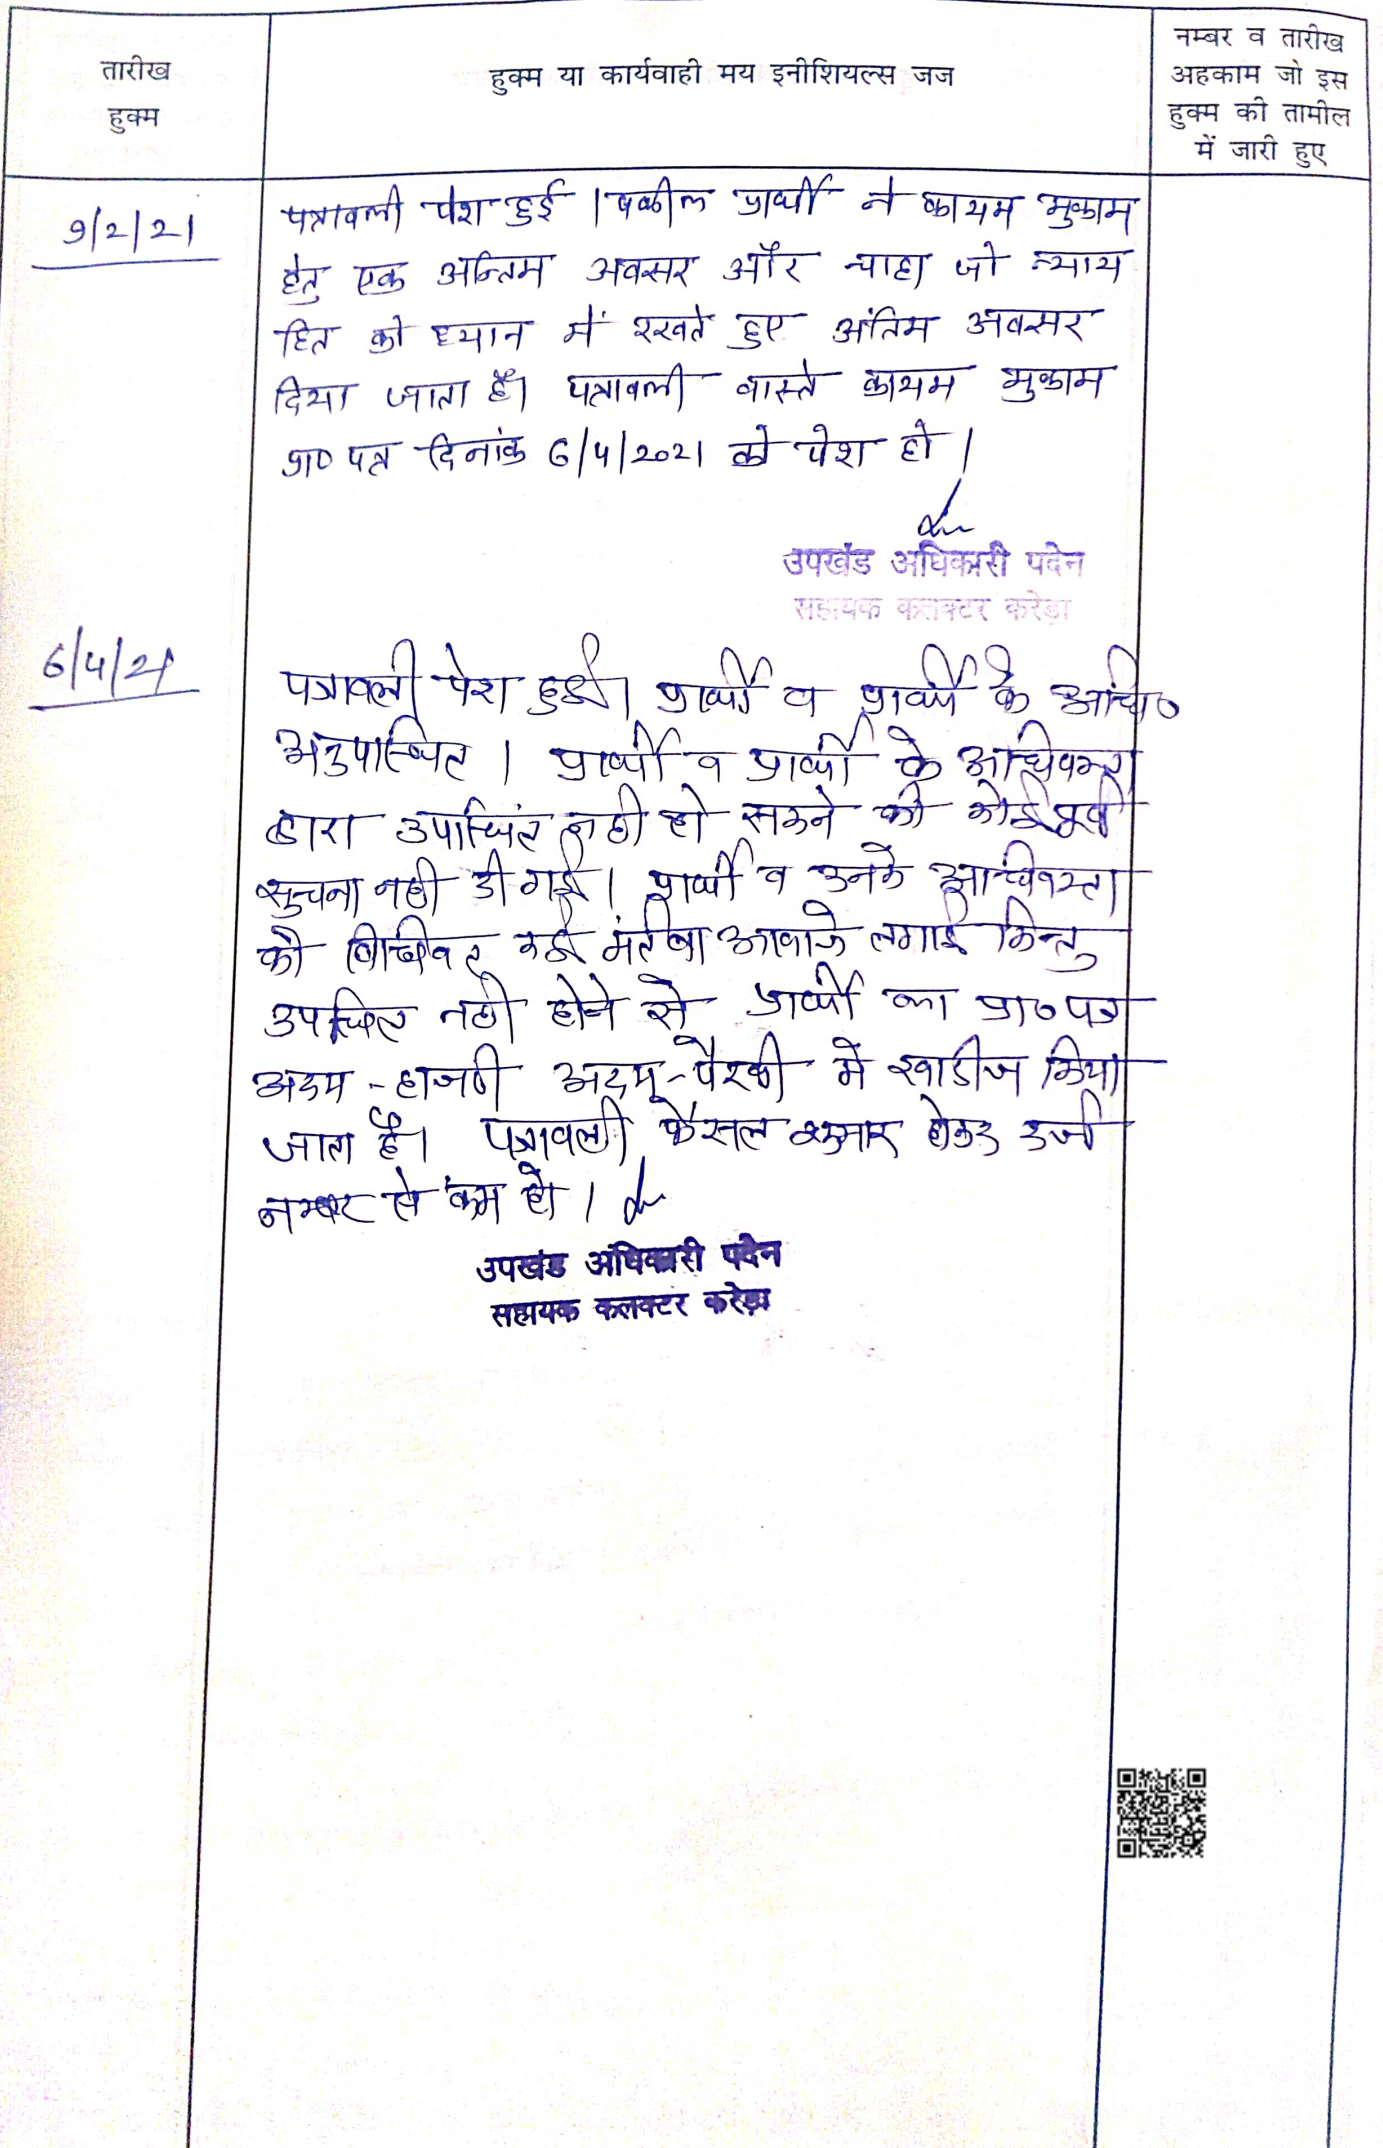 तारीख
हुक्म
हुक्म या कार्यवाही मय इनीशियल्स जज
नम्बर व तारीख
अहकाम जो इस
हुक्म की तामील
में जारी हुए
9/2/21
पत्रावली पेश हुई । वकील प्रार्थी ने कायम मुकाम
हेतु एक अन्तिम अवसर और चाहा जो न्याय
हित को ध्यान में रखते हुए अंतिम अवसर
दिया जाता है। पत्रावली वास्ते कायम मुकाम
प्रा० पत्र दिनांक 6/4/2021 को पेश हो।
उपखंड अधिकारी पदेन
सहायक कलक्टर करेड़ा
6/4/21
पत्रावली पेश हुई। प्रार्थी व प्रार्थी के अधि०
अनुपस्थित । प्रार्थी व प्रार्थी के अधिवक्ता
द्वारा उपस्थित नही हो सकने की कोई पूर्व
सुचना नही दी गई। प्रार्थी व उनके अधिवक्ता
को कई मर्तबा आवाजे लगाई किन्तु
उपस्थित नही होने से प्रार्थी का प्रा० पत्र
अदम - हाजरी अदम - पैरवी में खारीज किया
जाता है। पत्रावली फैसल शुमार होकर दर्ज
नम्बर से कम हो।
उपखंड अधिकारी पदेन
सहायक कलक्टर करेड़ा